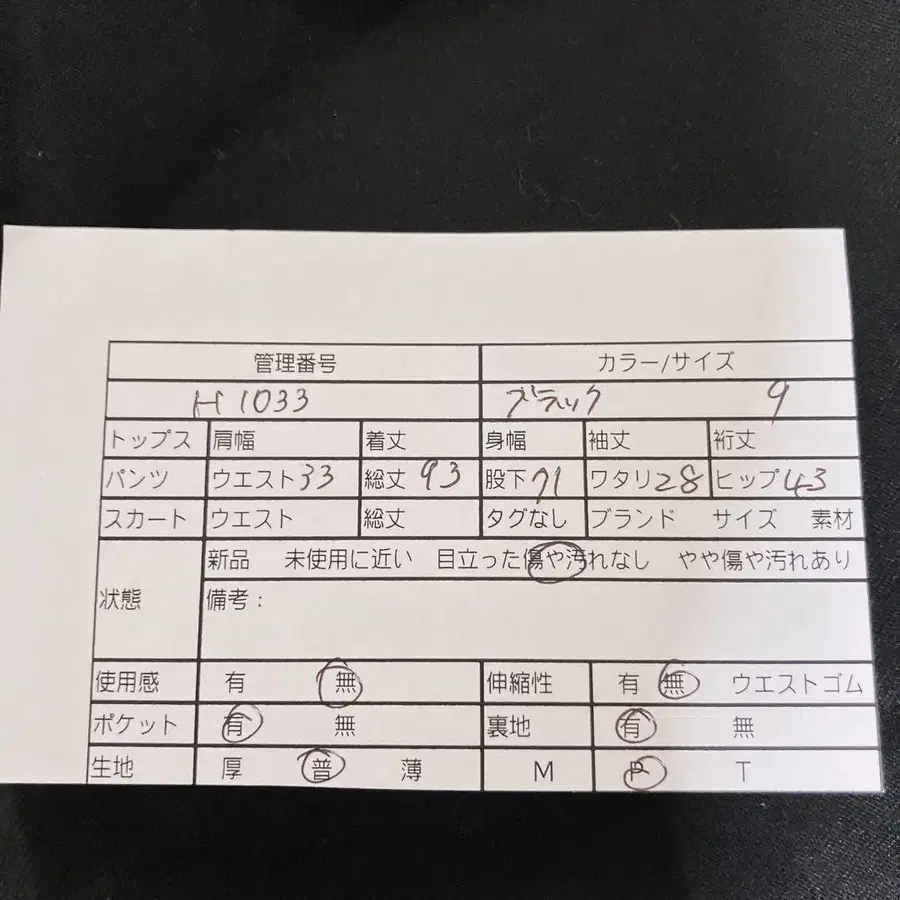 管理番号 カラー/サイズ
H1033 ブラック 9
トップス 肩幅 着丈 身幅 袖丈 裄丈
パンツ ウエスト33 総丈93 股下71 ワタリ28 ヒップ43
スカート ウエスト 総丈 タグなし ブランド サイズ 素材
新品 未使用に近い 目立った傷や汚れなし やや傷や汚れあり
状態 備考：
使用感 有 無 伸縮性 有 無 ウエストゴム
ポケット 有 無 裏地 有 無
生地 厚 普 薄 M P T